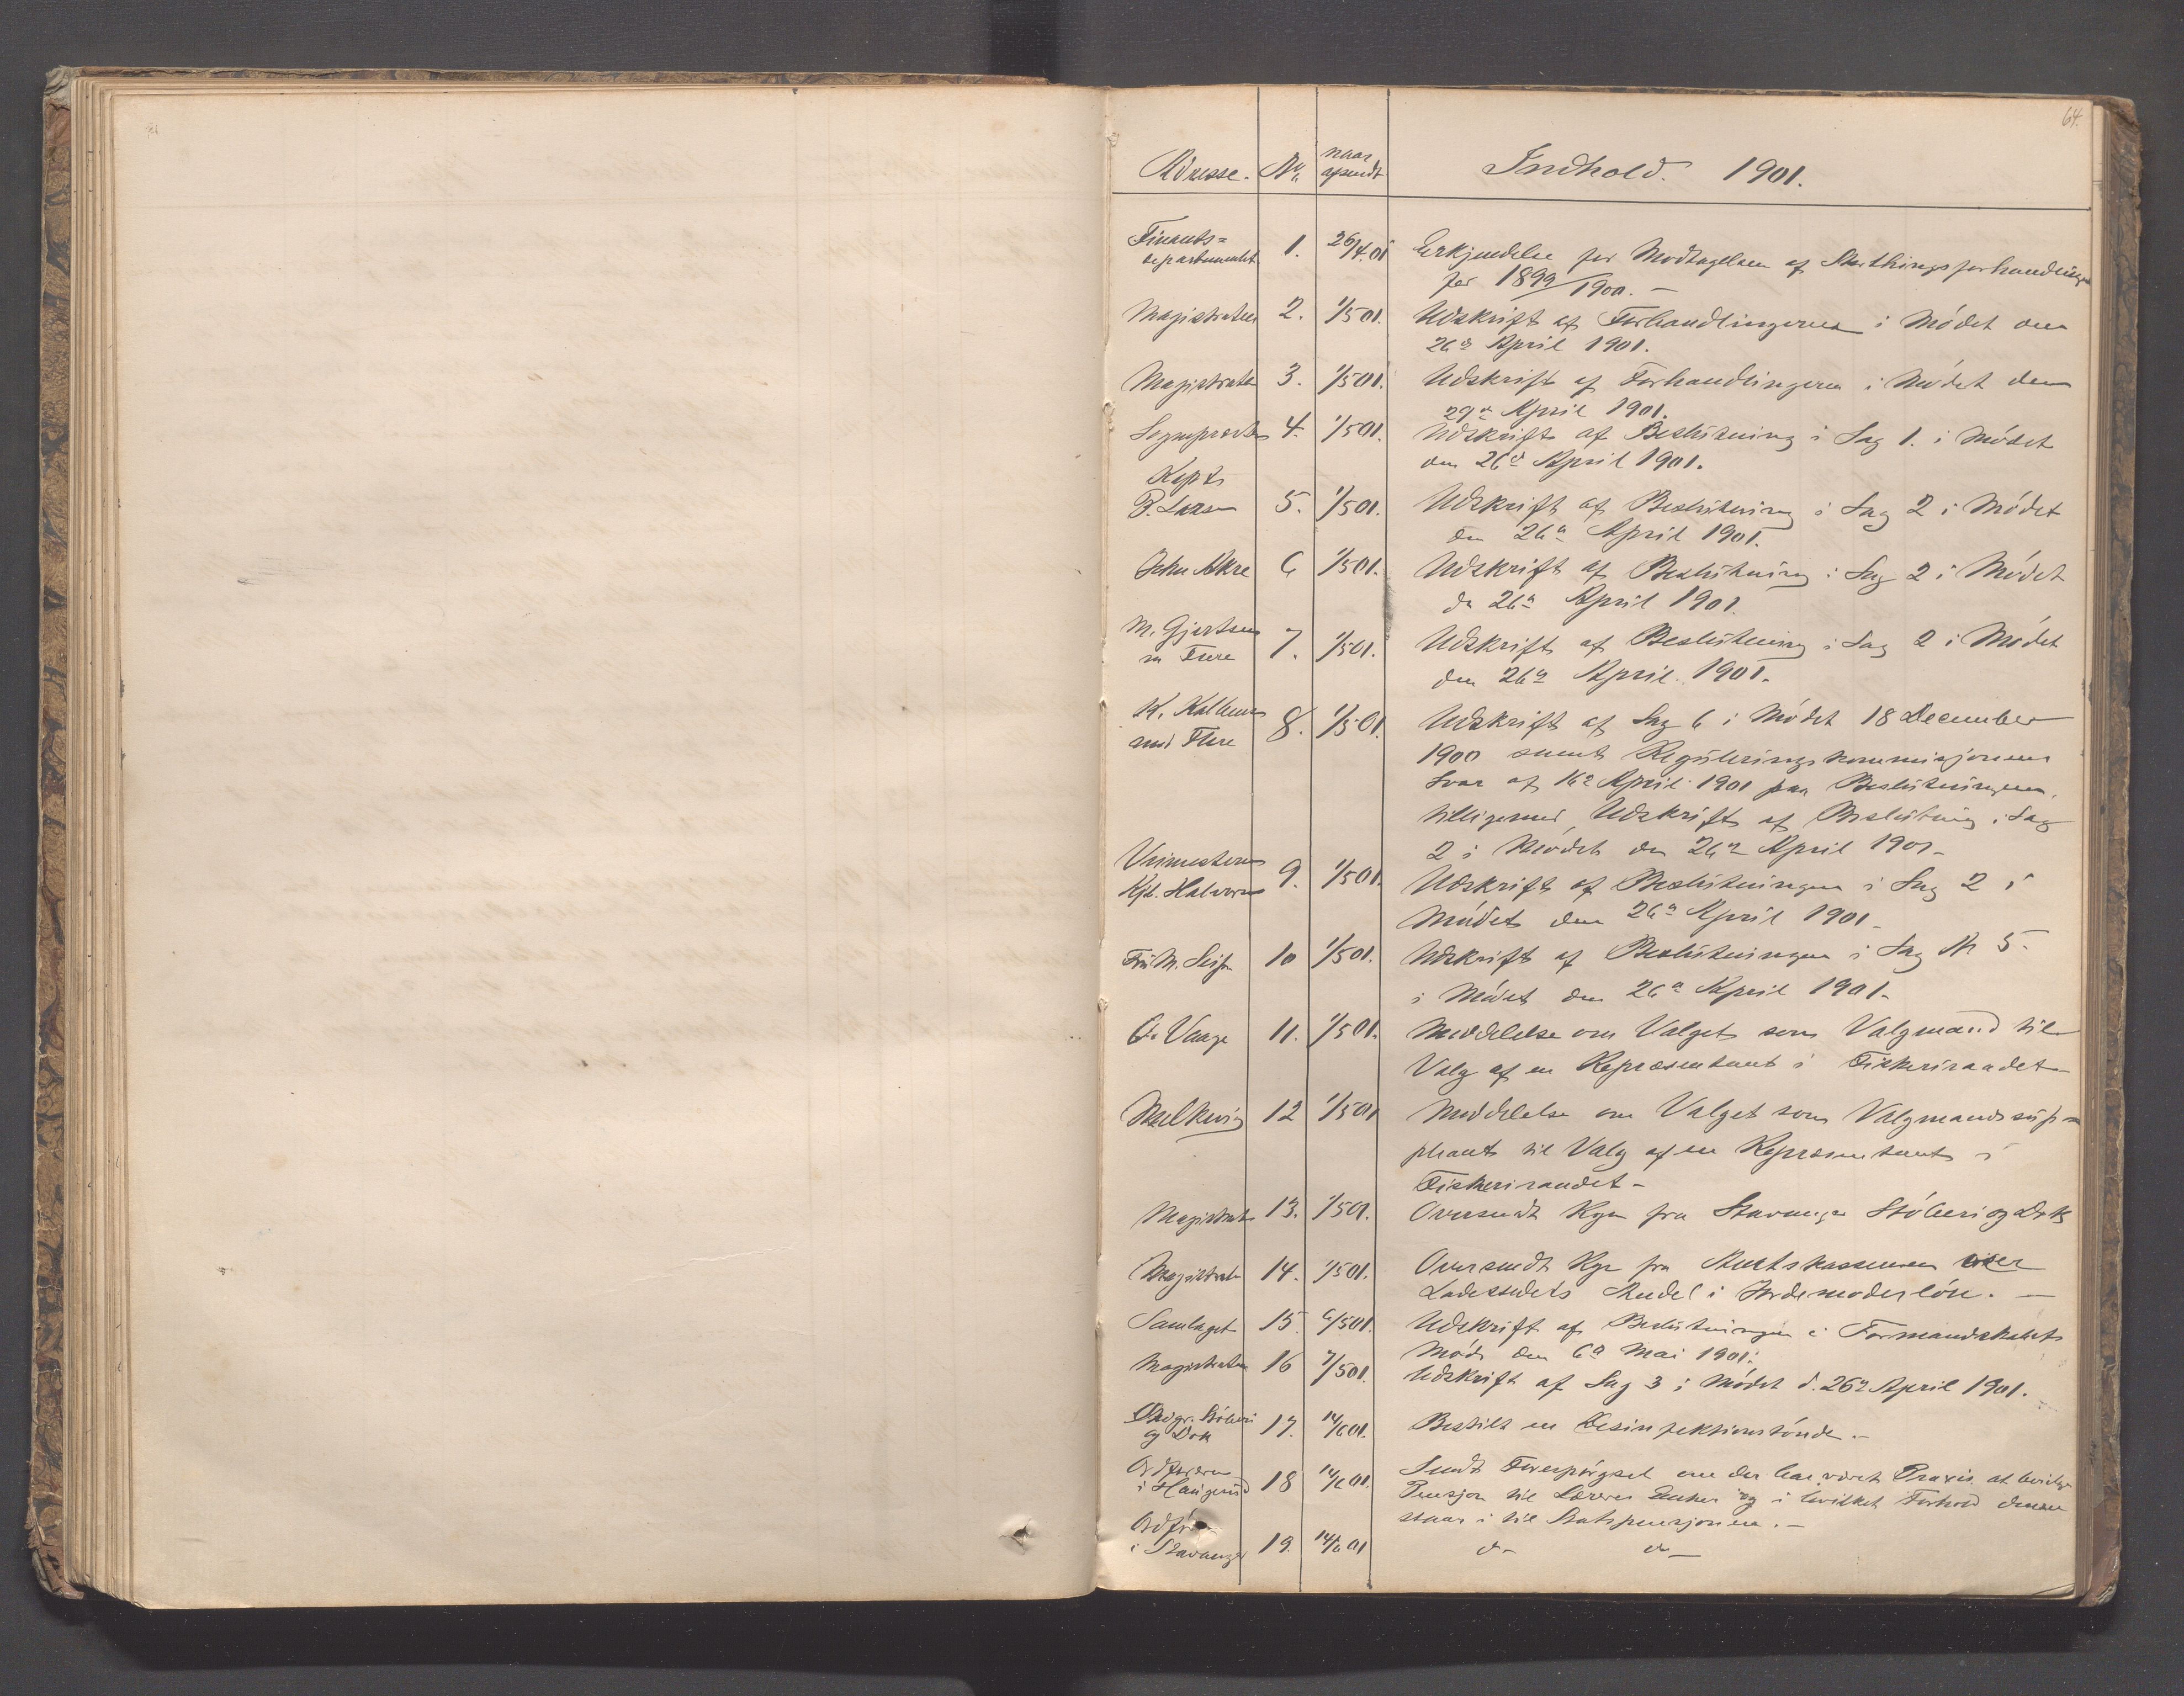 64.
Adresse. No. naar afsendt Indhold. 1901.
Finants= departementet 1. 26/4.01 Erkjendelse for Modtagelsen af Storthingsforhandlinger
for 1899/1900. –
Magistraten 2. 1/5 01. Udskrift af Forhandlingerne i Mödet den
26de April 1901.
Magistraten 3. 1/5 01. Udskrift af Forhandlingerne i Mödet den
29de April 1901.
Sognepræsten 4. 1/5 01. Udskrift af Beslutning i Sag 1. i Mödet
den 26de April 1901.
Kapt.
B. Larsen 5. 1/5 01. Udskrift af Beslutning i Sag 2 i Mödet
den 26de April 1901.
John Akre 6 1/5 01. Udskrift af Beslutning i Sag 2 i Mödet
den 26de April 1901.
M. Gjertsen
m Flere 7. 1/5 01. Udskrift af Beslutning i Sag 2 i Mödet
den 26de April 1901.
med Flere 8. 1/5 01. Udskrift af Sag 6 i Mödet 18 December
1900 samt Reguleringskommisjonens
Svar af 16de April 1901 paa Beslutningen,
tilligemed Udskrift af Beslutning i Sag
2 i Mödet den 26de April 1901 –
Kpt. Halvorsen 9. 1/5 01. Udskrift af Beslutningen i Sag 2 i
Mödet den 26de April 1901 –
Fru M. 10 1/5 01. Udskrift af Beslutningen i Sag No 5.
i Mödet den 26de April 1901 –
O. Vaage 11. 1/5 01. Meddelelse om Valget som Valgmand til
Valg af en Repræsentant i Fiskeriraadet –
12 1/5 01 Meddelelse om Valget som Valgmandssup=
pleant til Valg af en Repræsentant i
Fiskeriraadet –
Magistraten 13. 1/5 01. Oversendt Rgn fra Stavanger Stöberi og Dok
Magistraten 14. 1/5 01. Oversendt Rgn fra Amtskassereren over
Ladestedets Andel i Jordemoderlön. –
Samlaget 15. 6/5 01. Udskrift af Beslutningen i Formandskabets
Möde den 6de Mai 1901.
Magistraten 16 7/5 01. Udskrift af Sag 3 i Mödet d. 26de April 1901.
Stvgr. Stöberi
og Dok 17. 14/6 01. Bestilt en Desinfektionstönde. –
Ordföreren
i Haugesund 18 14/6 01. Sendt Forespörgsel om der har været Praxis at bevilge
Pensjon til Læreres Enker og i hvilket Forhold denne
staar i til Statspensjonen. –
Ordföreren
i Stavanger 19. 14/6 01 do do –